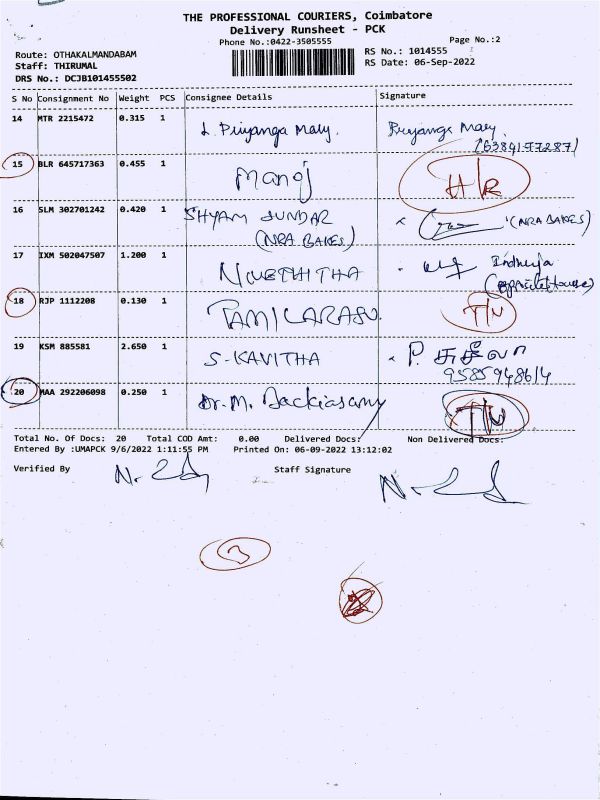 THE PROFESSIONAL COURIERS, Coimbatore
Delivery Runsheet - PCK
Phone No.:0422-3505555
Page No.:2
Route: OTHAKALMANDABAM
RS No.: 1014555
Staff: THIRUMAL
RS Date: 06-Sep-2022
DRS No.: DCJB101455502
S No Consignment No Weight PCS Consignee Details Signature
14 MTR 2215472 0.315 1 L. Priyanga Mary. Priyanga Mary
(6384177287)
15 BLR 645717363 0.455 1 Manoj
16 SLM 302701242 0.420 1 SHYAM SUNDAR (NRA BAKES)
(NRA BAKES)
17 IXM 502047507 1.200 1 Indhuja
(opposite House)
18 RJP 1112208 0.130 1 TAMILARASU.
19 KSM 885581 2.650 1 S-KAVITHA P.
9585948614
20 MAA 292206098 0.250 1 Dr. M. Backiasamy
Total No. Of Docs: 20 Total COD Amt: 0.00 Delivered Docs: Non Delivered Docs:
Entered By :UMAPCK 9/6/2022 1:11:55 PM Printed On: 06-09-2022 13:12:02
Verified By Staff Signature
3